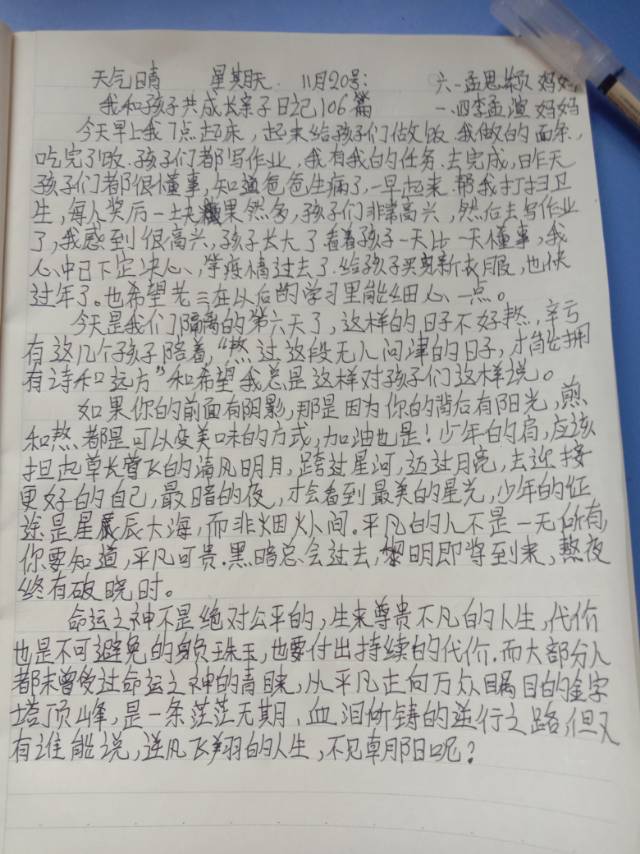 天气晴 星期天. 11月20号: 六一孟思颖妈妈
我和孩子共成长亲子日记106篇 一.四李孟渲妈妈
今天早上我7点起床,起来给孩子们做饭.我做的面条,
吃完了饭.孩子们都写作业.我有我的任务.去完成,昨天
孩子们都很懂事,知道爸爸生病了,一早起来帮我打扫卫
生,每人奖后一块果然多,孩子们非常高兴,然后去写作业
了,我感到很高兴,孩子长大了看着孩子一天比一天懂事,我
心中日下定决心,等疫情过去了.给孩子买身新衣服,也快
过年了。也希望老三在以后的学习里能细心一点。
今天是我们隔离的第六天了,这样的日子不好熬,辛亏
有这几个孩子陪着,“熬过这段无人问津的日子,才能拥
有诗和远方”和希望我总是这样对孩子们这样说。
如果你的前面有阴影,那是因为你的背后有阳光,煎
和熬都是可以变美味的方式,加油也是!少年的肩,应该
担起草长莺飞的清风明月,跨过星河,迈过月亮,去迎接
更好的自己,最暗的夜,才会看到最美的星光,少年的征
途是星辰大海,而非烟火人间.平凡的人不是一无所有,
你要知道,平凡可贵.黑暗总会过去,黎明即将到来,熬夜
终有破晓时。
命运之神不是绝对公平的,生来尊贵不凡的人生,代价
也是不可避免的身负珠玉,也要付出持续的代价.而大部分人
都未曾受过命运之神的青睐,从平凡走向万众瞩目的金字
塔顶峰,是一条茫茫无期、血泪所铸的逆行之路,但又
有谁能说,逆风飞翔的人生,不见朝阳呢?